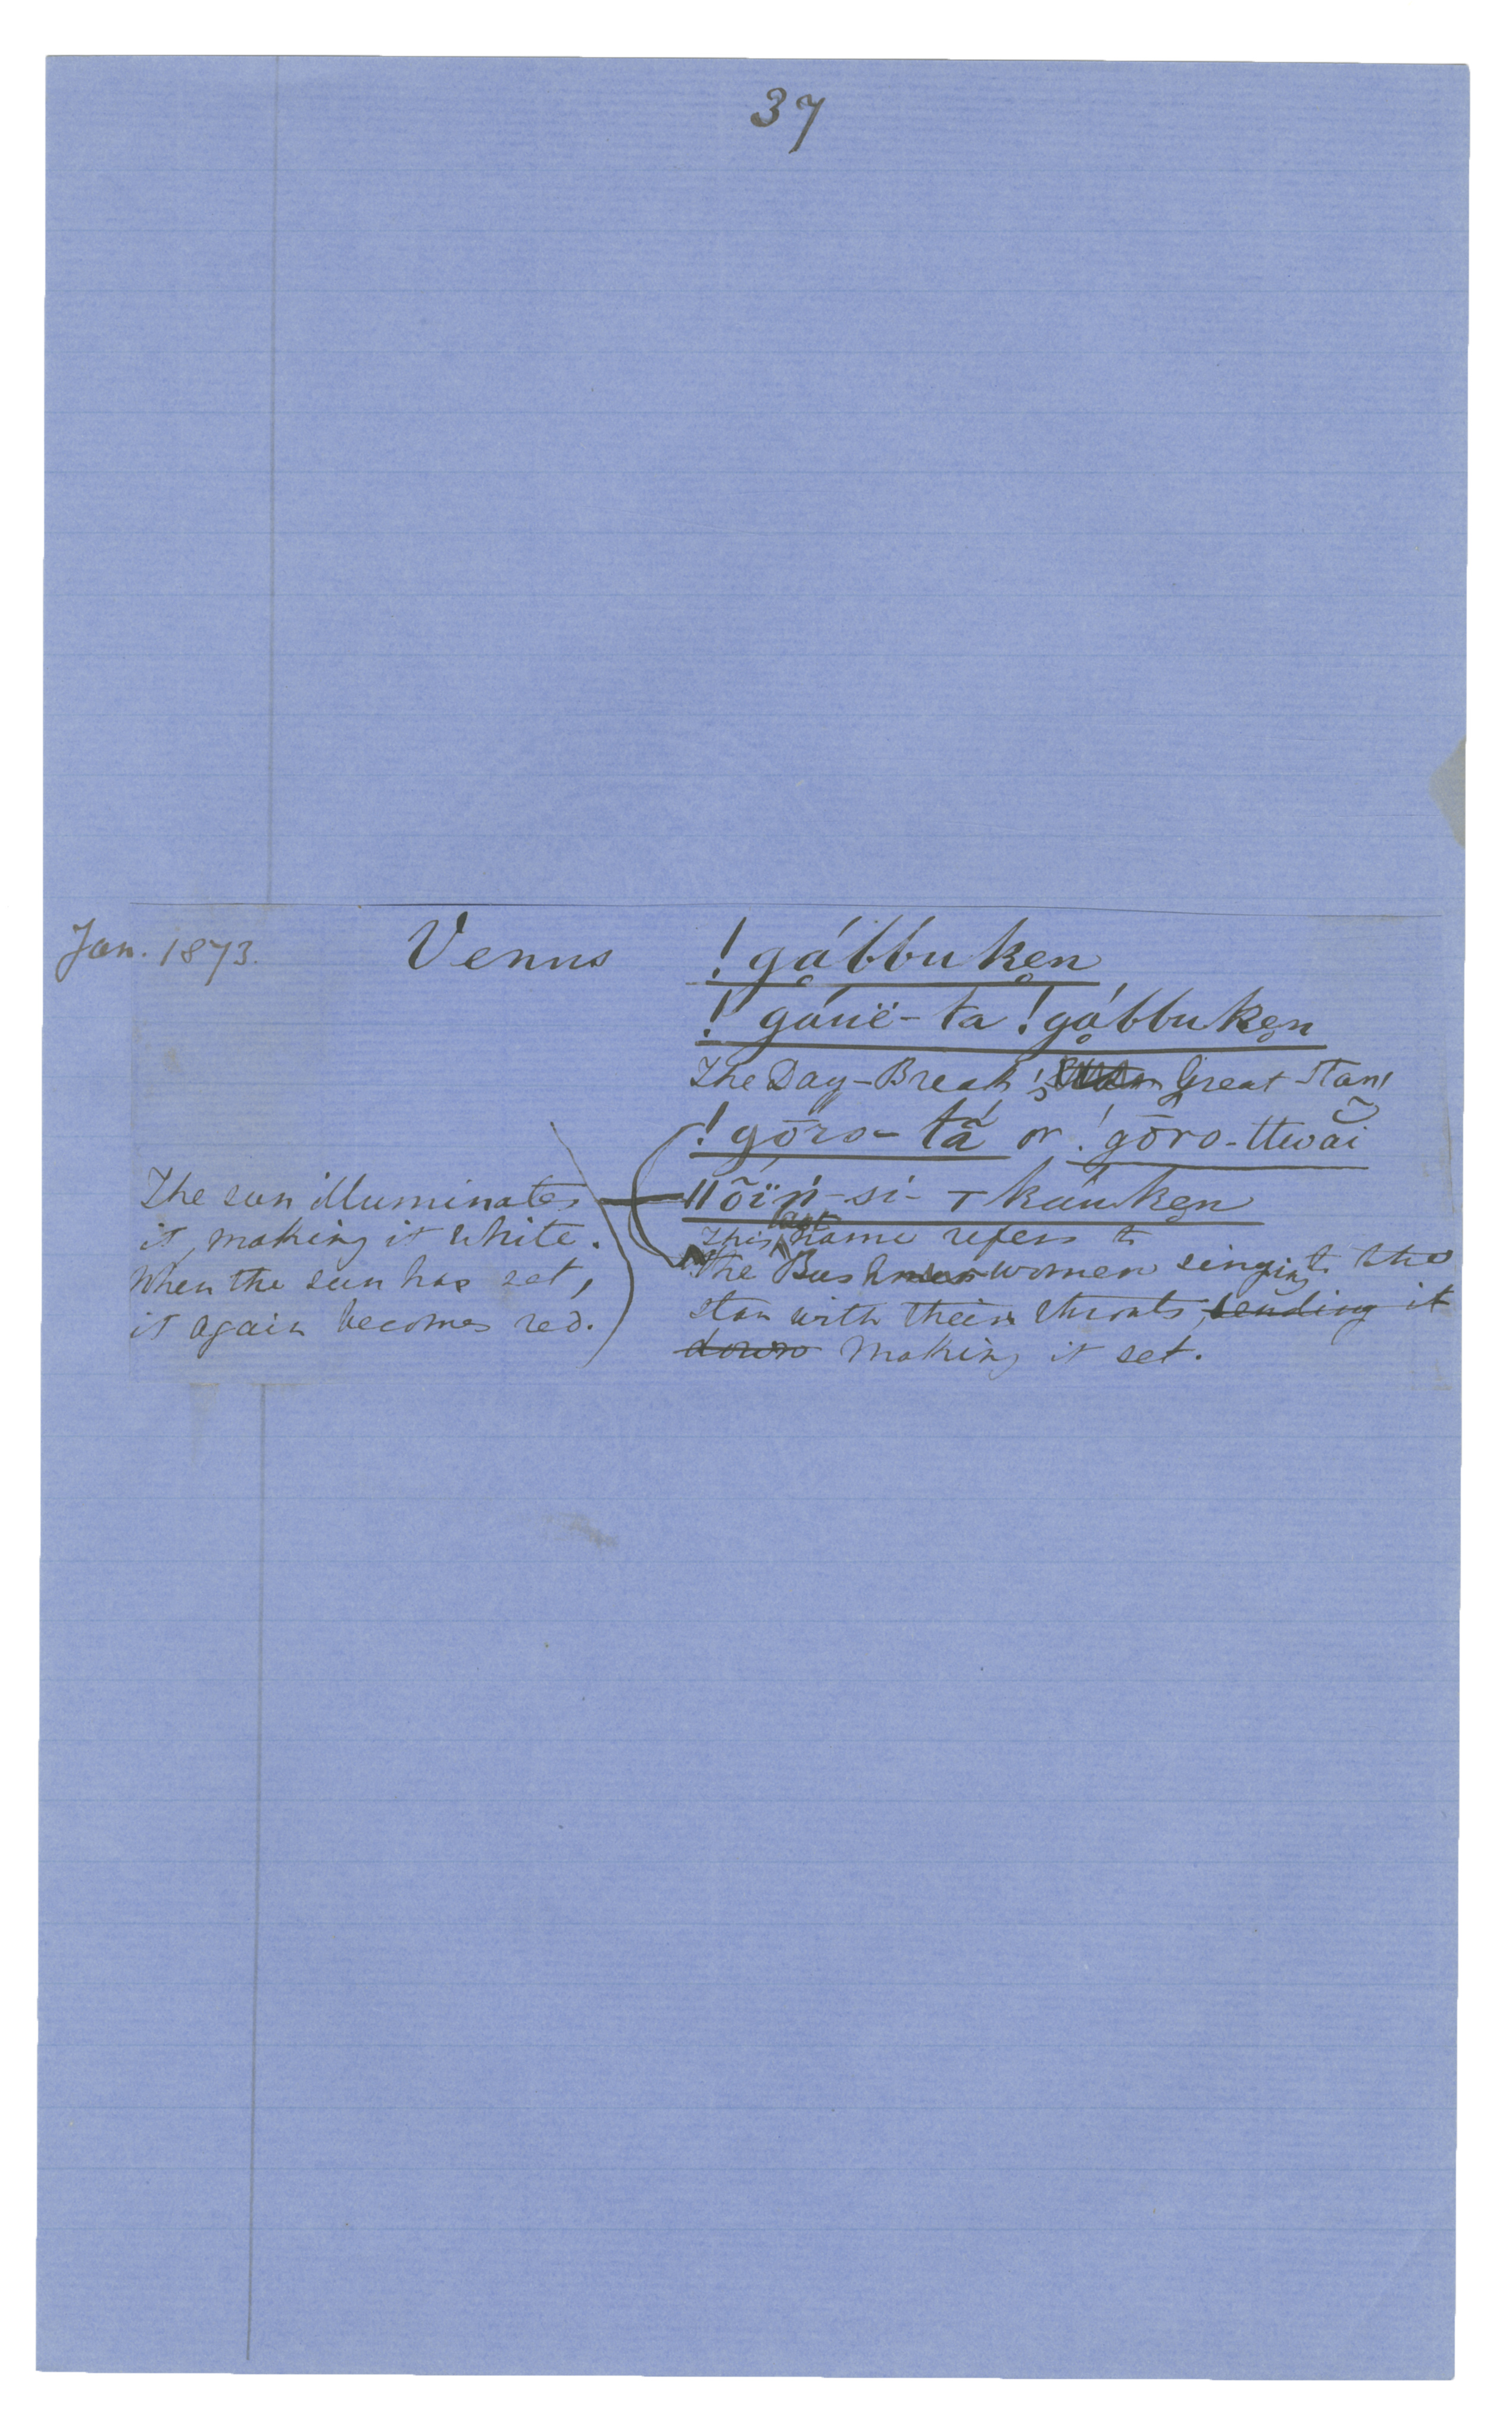 37
Jan. 1873.
Venus
!gábbuken
!gáuë-ta !gábbuken
The Day-Break's Great Star,
!gōro-tã́ or !gōro-ttwãi
ǁõïń-si-káuken
This last name refers to
the Bushman women singing to the
star with their throats, bending it
down making it set.
The sun illuminates
it, making it white.
When the sun has set,
it again becomes red.